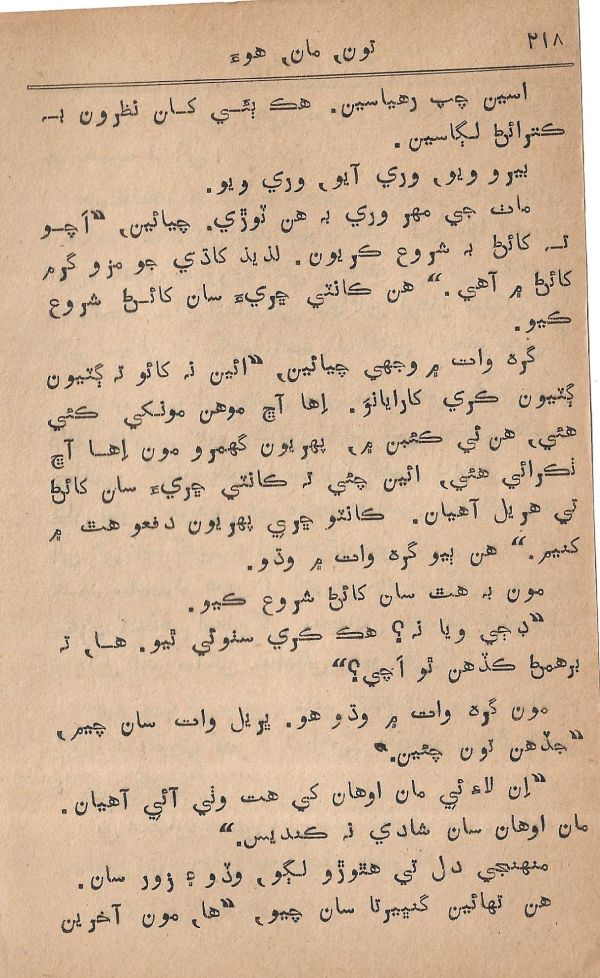 تون، مان، هوءَ
۲۱۸
اسين چپ رهياسين. هڪ ٻئي کان نظرون بہ
ڪترائڻ لڳاسين.
بيرو ويو، وري آيو، وري ويو.
مات جي مهر وري بہ هن ٽوڙي. چيائين، ”اَچو
تہ کائڻ بہ شروع ڪريون. لذيذ کاڌي جو مزو گرم
کائڻ ۾ آهي.“ هن ڪانٽي ڇريءَ سان کائڻ شروع
ڪيو.
گره وات ۾ وجهي چيائين، ”ائين نہ کائو تہ ڳٽيون
ڳٽيون ڪري کارايانوَ. اِها آڇ موهن مونکي ڪئي
هئي، هن ئي ڪئبن ۾، پهريون گهمرو مون اِها آڇ
ٺڪرائي هئي، ائين چئي تہ ڪانٽي ڇريءَ سان کائڻ
تي هريل آهيان. ڪانٽو ڇري پهريون دفعو هٿ ۾
کنيم.“ هن ٻيو گره وات ۾ وڌو.
مون بہ هٿ سان کائڻ شروع ڪيو.
”ڊڄي ويا نہ؟ هڪ ڪري سٺوئي ٿيو. ها، تہ
برهمڻ ڪڏهن ٿو اَچي؟“
مون گره وات ۾ وڌو هو. ڀريل وات سان چيم،
”جڏهن تون چئين.“
”اِن لاءِ ئي مان اوهان کي هت وٺي آئي آهيان.
مان اوهان سان شادي نہ ڪنديس.“
منهنجي دل تي هٿوڙو لڳو، وڏو ۽ زور سان.
هن تهائين گنڀيرتا سان چيو، ”ها، مون آخرين